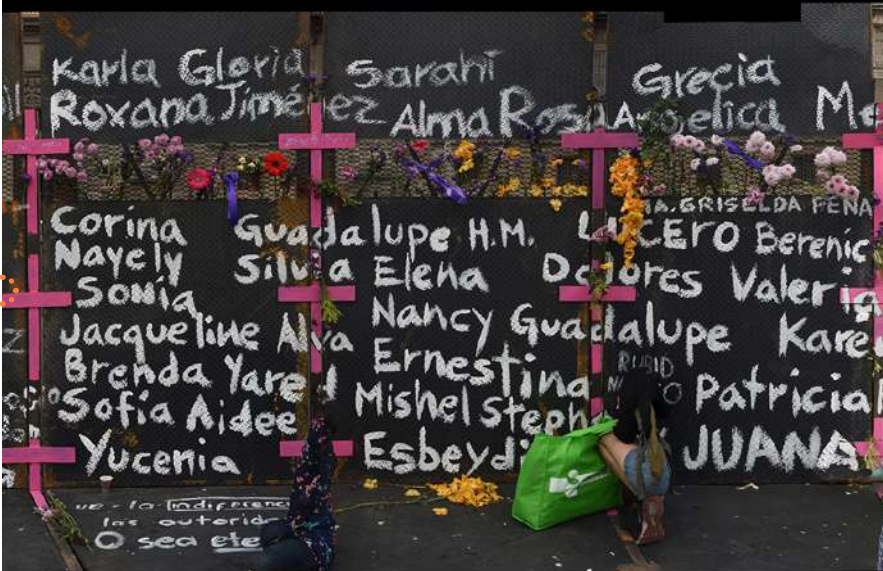 Karla Gloria Sarahí Grecia
Roxana Jiménez Alma Rosa Angelica
MA. GRISELDA PEÑA
Corina Guadalupe H.M. LUCERO Berenic
Nayely Silvia Elena Dolores Valeria
Sonia Nancy Guadalupe Kare
Jacqueline Alva Ernestina RUBID
Brenda Yare Patricia
Sofía Aidee Mishel Steph
Yucenia Esbeydi JUANA
ue la indiferenc
las autorid
O sea ete